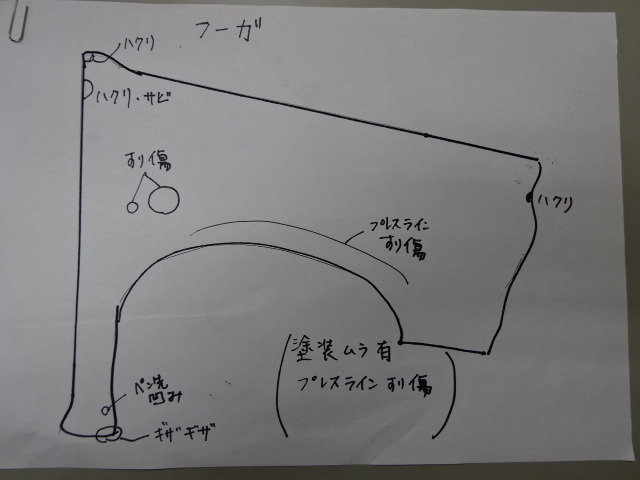 フーガ
ハクリ
ハクリ・サビ
すり傷
ハクリ
プレスライン
すり傷
塗装ムラ有
プレスラインすり傷
ペン先
凹み
ギザギザ